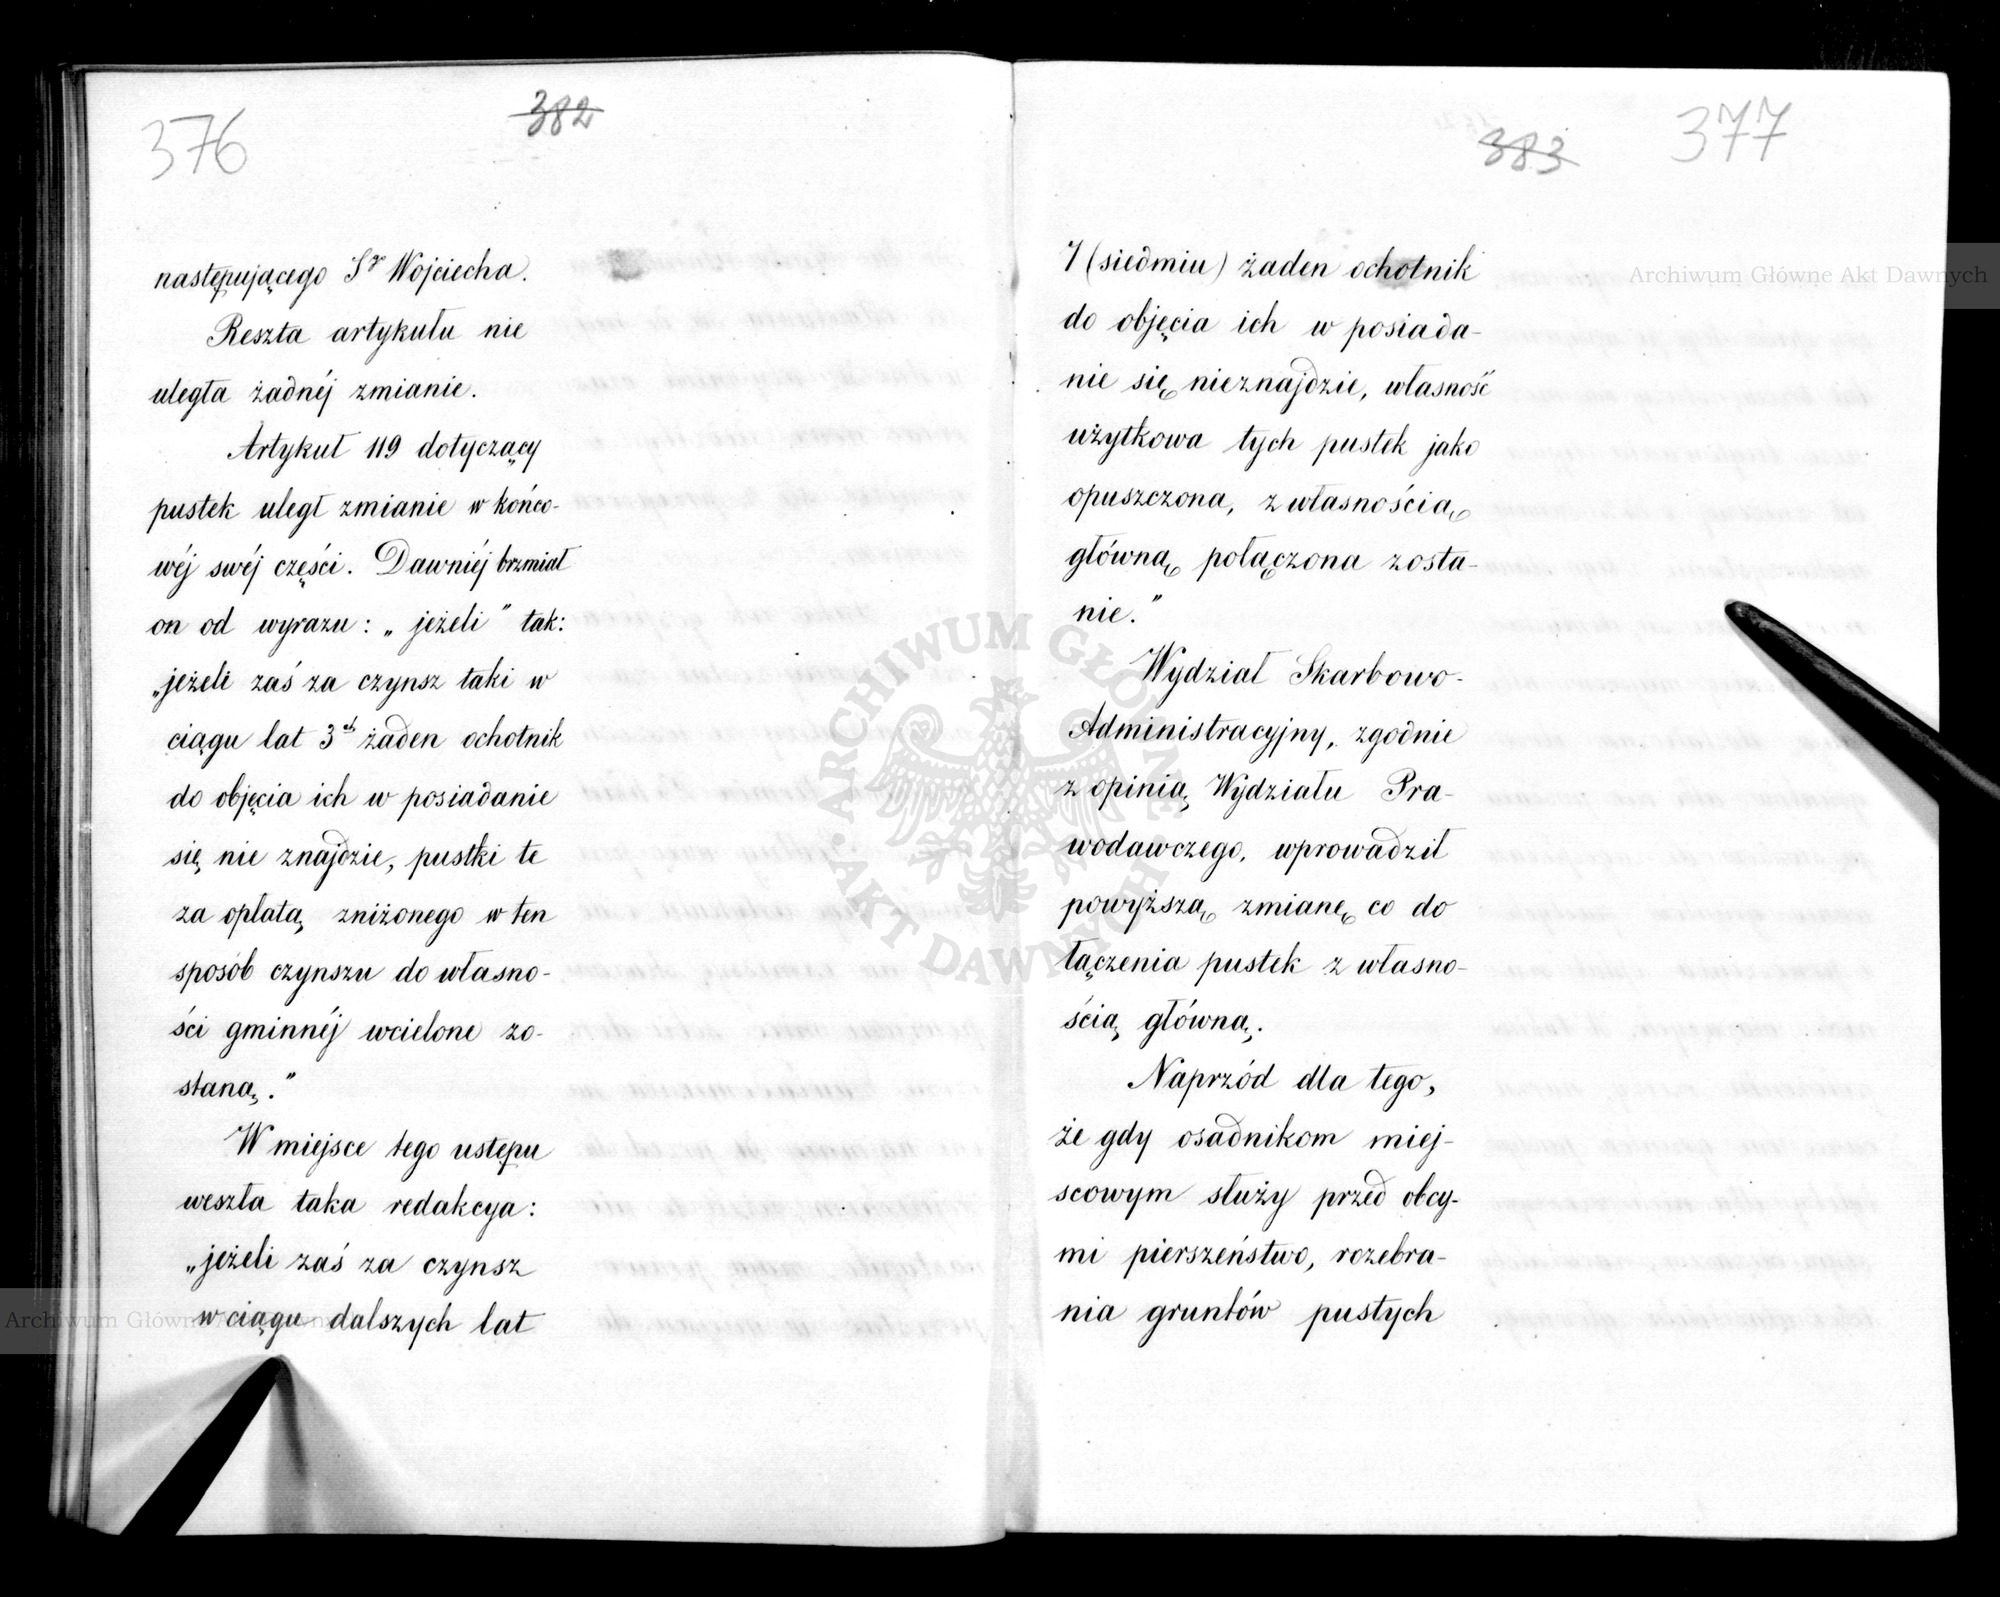 376
382
następującego Sgo Wojciecha.
Reszta artykułu nie
uległa żadnéj zmianie.
Artykuł 119 dotyczący
pustek uległ zmianie w końco-
wéj swéj części. Dawniéj brzmiał
on od wyrazu: „jeżeli” tak:
„jeżeli zaś za czynsz taki w
ciągu lat 3ch żaden ochotnik
do objęcia ich w posiadanie
się nie znajdzie, pustki te
za opłatą zniżonego w ten
sposób czynszu do własno-
ści gminnéj wcielone zo-
staną.”
W miejsce tego ustępu
weszła taka redakcya:
„jeżeli zaś za czynsz
w ciągu dalszych lat
383
377
7 (siedmiu) żaden ochotnik
do objęcia ich w posiada-
nie się nieznajdzie, własność
użytkowa tych pustek jako
opuszczona, z własnością
główną połączona zosta-
nie.”
Wydział Skarbowo-
Administracyjny, zgodnie
z opinią Wydziału Pra-
wodawczego, wprowadził
powyższą zmianę co do
łączenia pustek z własno-
ścią główną.
Naprzód dla tego,
że gdy osadnikom miej-
scowym służy przed obcy-
mi pierszeństwo, rozebra-
nia gruntów pustych
ARCHIWUM GŁÓWNE
AKT DAWNYCH
Archiwum Główne Akt Dawnych
Archiwum Główne Akt Dawnych